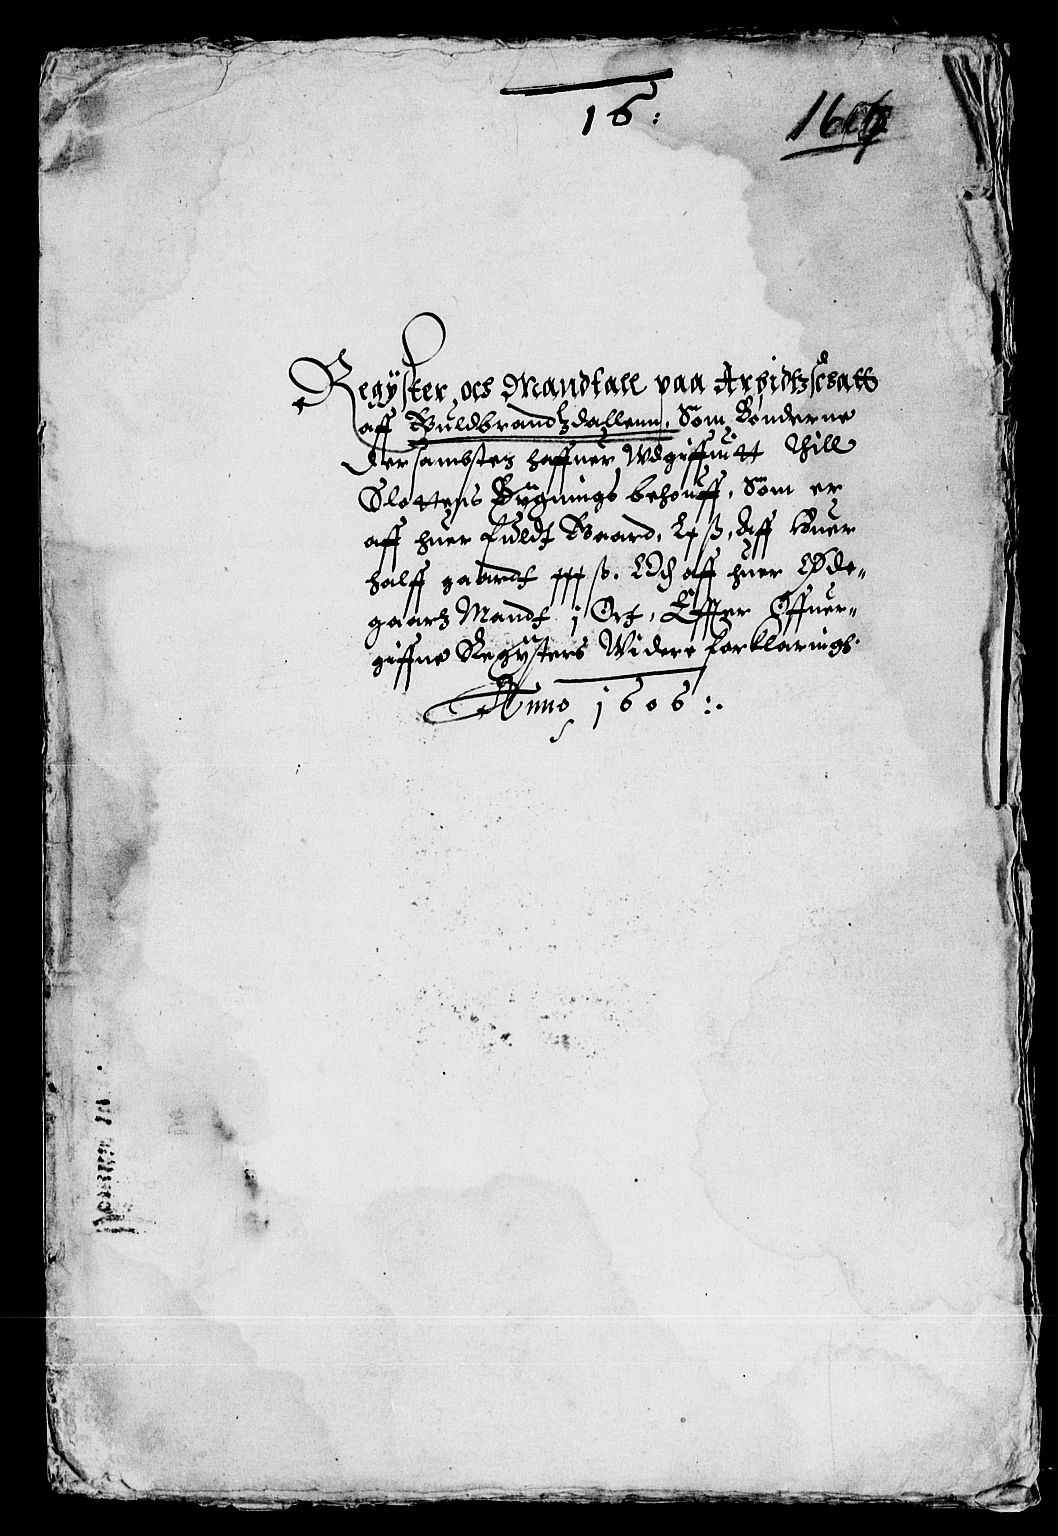 16:
1606
Regÿster och Mandtall paa Arbidtzschatt
aff Guldbrandtzdallenn, Som Bønderne
der sambstedz haffuer Wdgiffuitt Thill
Slottens Bÿgnings behouff, Som er
aff huer fuldt Gaard, Lx ß, Aff huer
halff gaardt xxx ß. Och aff huer Øde-
gaardz Mandt j Ort, Effter Offuer-
giffne Regÿsters Widere forklarings
Anno 1606:.